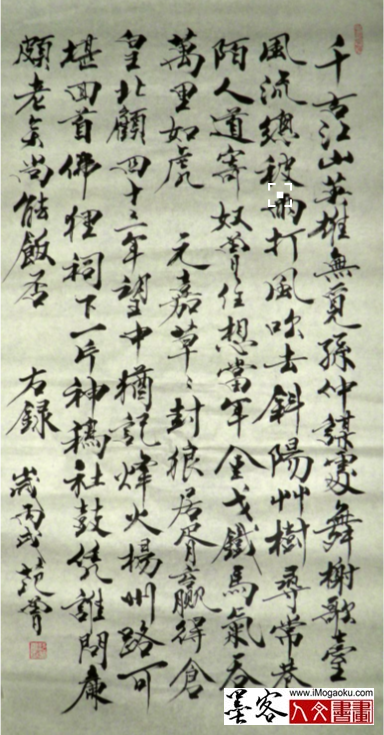 千古江山英雄無覓孫仲謀處舞榭歌臺
風流總被雨打風吹去斜陽艸樹尋常巷
陌人道寄奴曾住想當年金戈鐵馬氣吞
萬里如虎 元嘉草〻封狼居胥贏得倉
皇北顧四十三年望中猶記烽火揚州路可
堪回首佛狸祠下一片神鴉社鼓凭誰問廉
頗老矣尚能飯否 右録 歲丙戌
www.iMogaoku.com
墨客
人文書畫